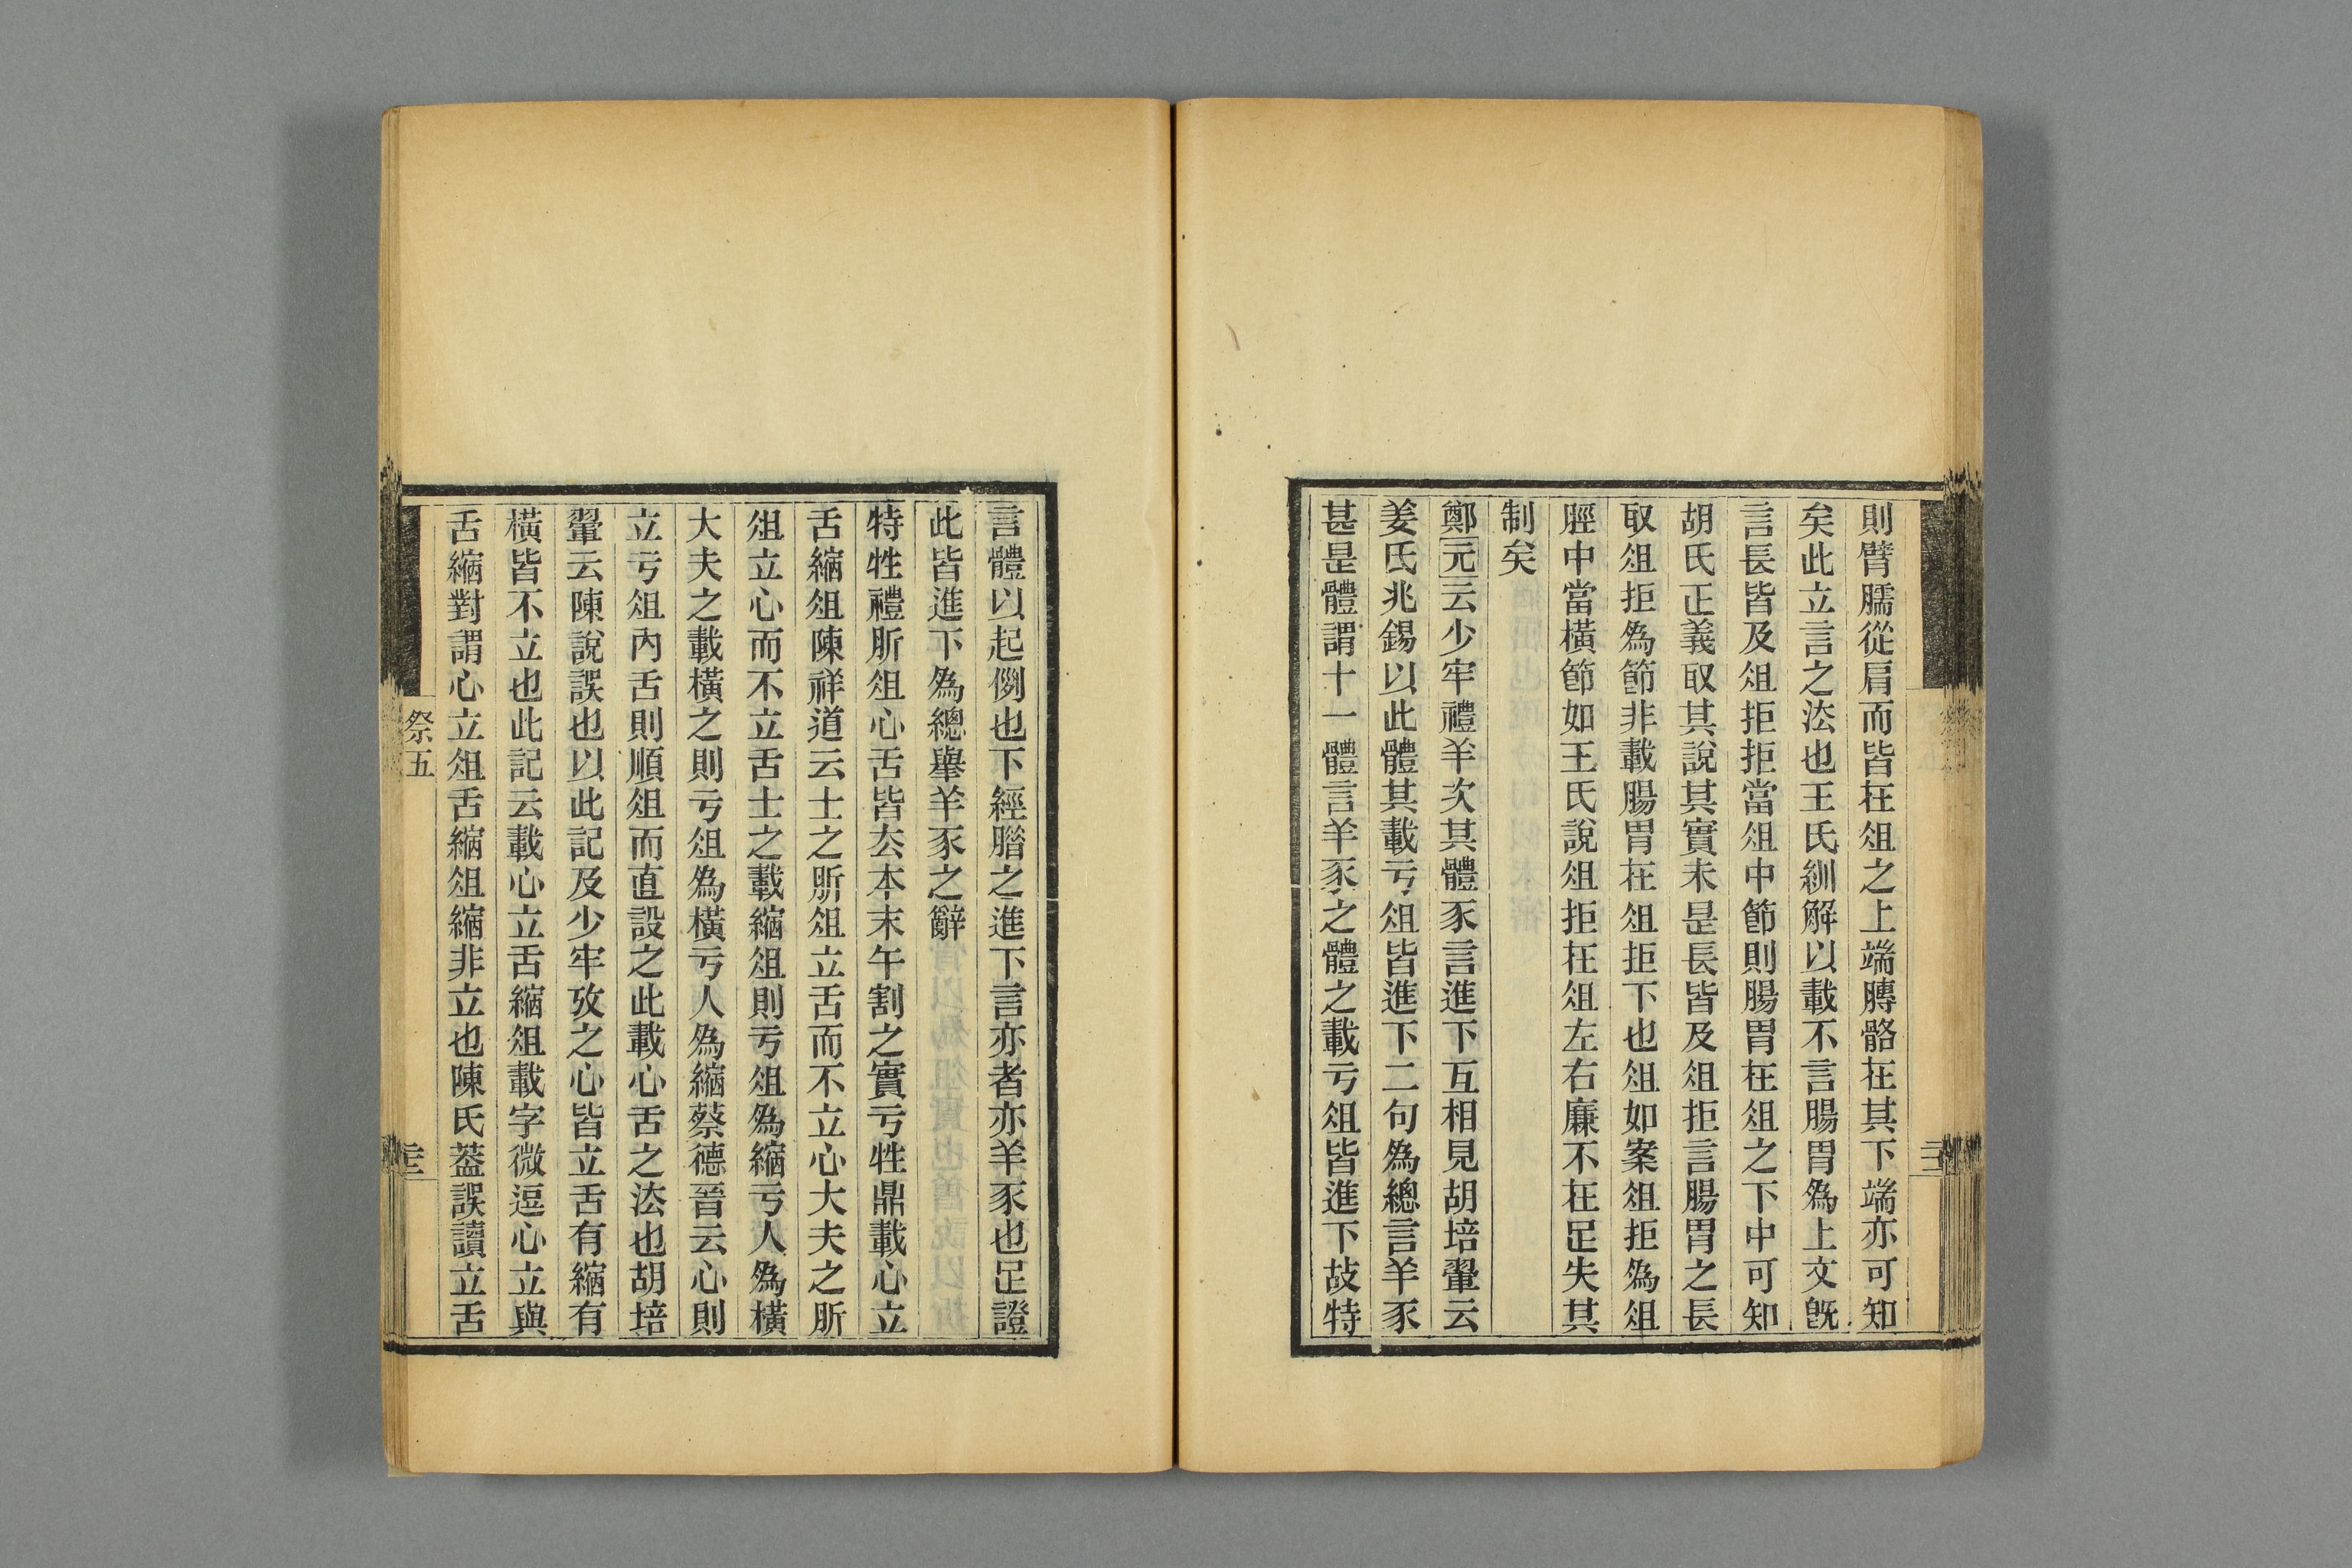 則臂臑從肩而皆在俎之上端膞骼在其下端亦可知
矣此立言之法也王氏紃解以載不言腸胃為上文旣
言長皆及俎拒拒當俎中節則腸胃在俎之下中可知
胡氏正義取其說其實未是長皆及俎拒言腸胃之長
取俎拒為節非載腸胃在俎拒下也俎如案俎拒為俎
脛中當橫節如王氏說俎拒在俎左右廉不在足失其
制矣
鄭元云少牢禮羊次其體豕言進下互相見胡培翬云
姜氏兆錫以此體其載亏俎皆進下二句為總言羊豕
甚是體謂十一體言羊豕之體之載亏俎皆進下故特
言體以起例也下經腊之進下言亦者亦羊豕也足證
此皆進下為總舉羊豕之辭
特牲禮肵俎心舌皆去本末午割之實亏牲鼎載心立
舌縮俎陳祥道云士之肵俎立舌而不立心大夫之肵
俎立心而不立舌士之載縮俎則亏俎為縮亏人為橫
大夫之載橫之則亏俎為橫亏人為縮蔡德晉云心則
立亏俎內舌則順俎而直設之此載心舌之法也胡培
翬云陳說誤也以此記及少牢攷之心皆立舌有縮有
橫皆不立也此記云載心立舌縮俎載字微逗心立與
舌縮對謂心立俎舌縮俎縮非立也陳氏蓋誤讀立舌
祭五